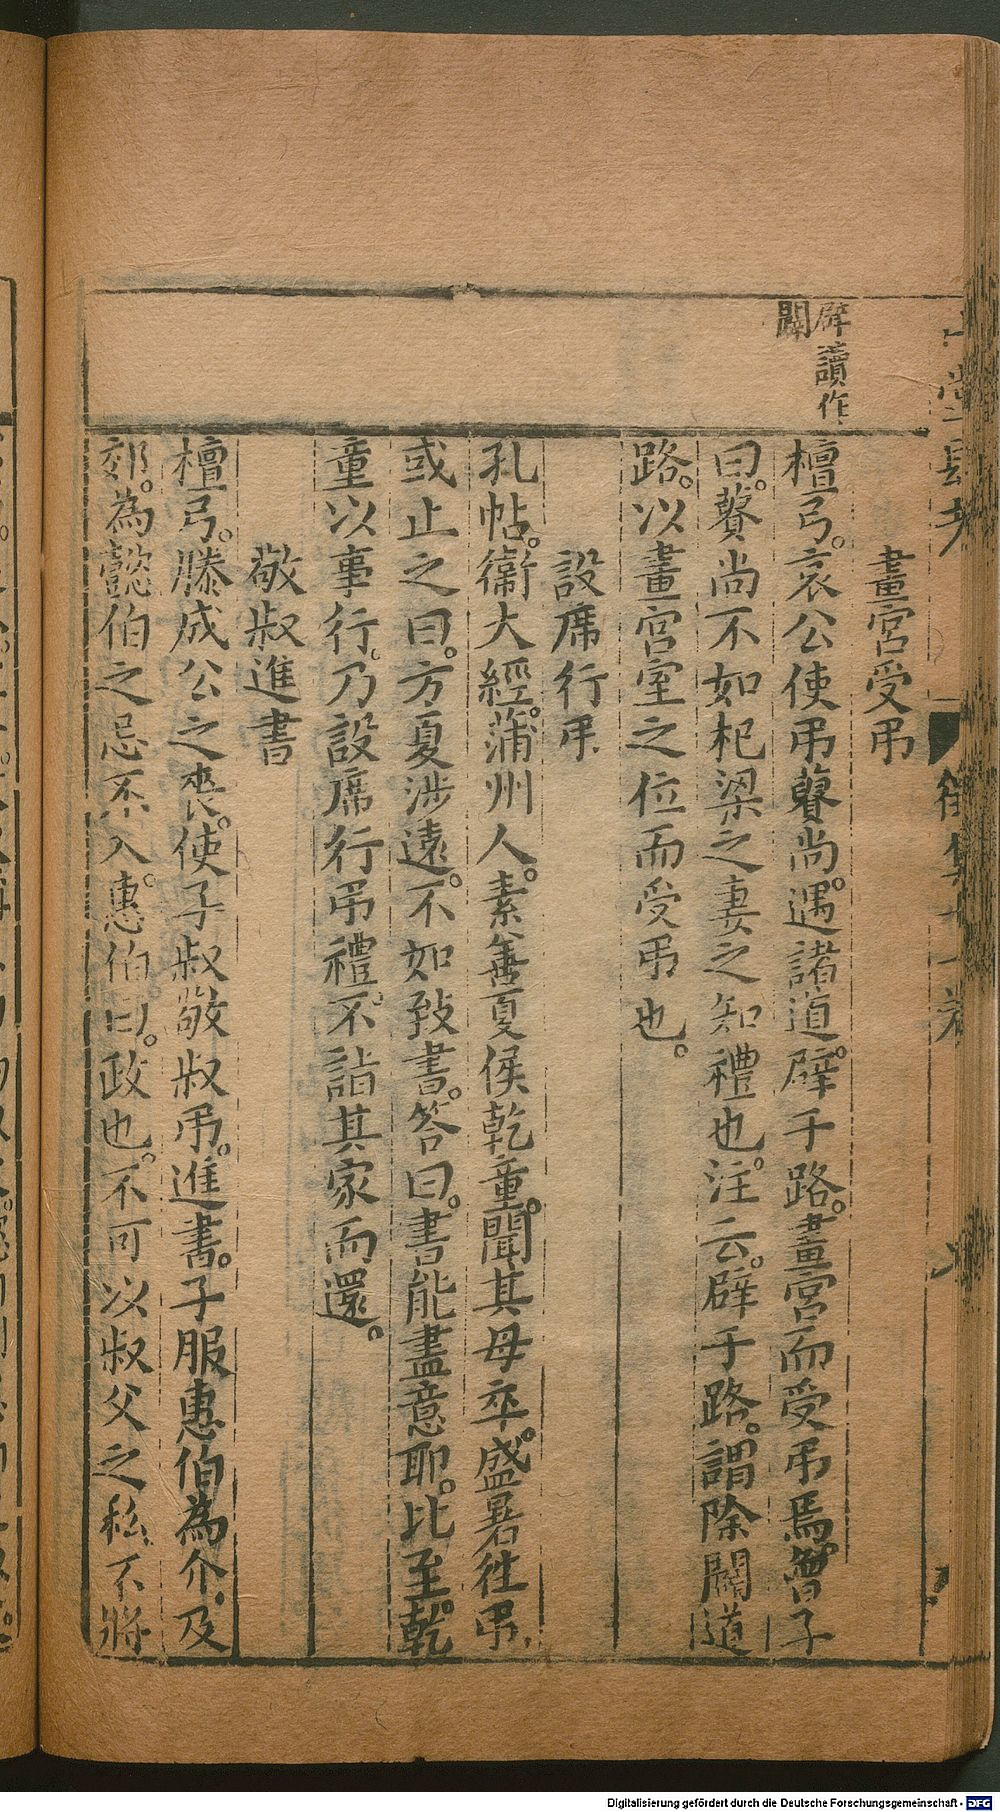 辟讀作
闢
畫宮受弔
檀弓。哀公使弔蕢尚。遇諸道。辟于路。畫宮而受弔焉。曾子
曰。蕢尚不如杞梁之妻之知禮也。注云。辟于路。謂除闢道
路。以畫宮室之位而受弔也。
設席行弔
孔帖。衛大經。蒲州人。素善夏侯乾童。聞其母卒。盛暑往弔。
或止之曰。方夏涉遠。不如致書。答曰。書能盡意耶。比至。乾
童以事行。乃設席行弔禮。不詣其家而還。
敬叔進書
檀弓。滕成公之喪。使子叔敬叔弔。進書。子服惠伯為介。及
郊。為懿伯之忌不入。惠伯曰。政也。不可以叔父之私。不將
Digitalisierung gefördert durch die Deutsche Forschungsgemeinschaft - DFG